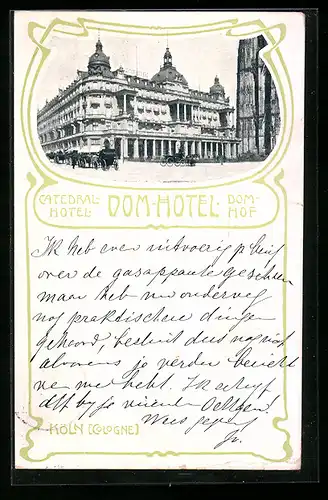 CATEDRAL-HOTEL· DOM-HOTEL· DOM-HOF
Ik heb even uitvoerig p brief
over de gasappante geschreven
maar heb nu onderweg
nog praktischere dingen
gehoord, besluit dus nog niet
alvorens je verder bericht
van me hebt. Ik schryf
dit by
KÖLN [COLOGNE]